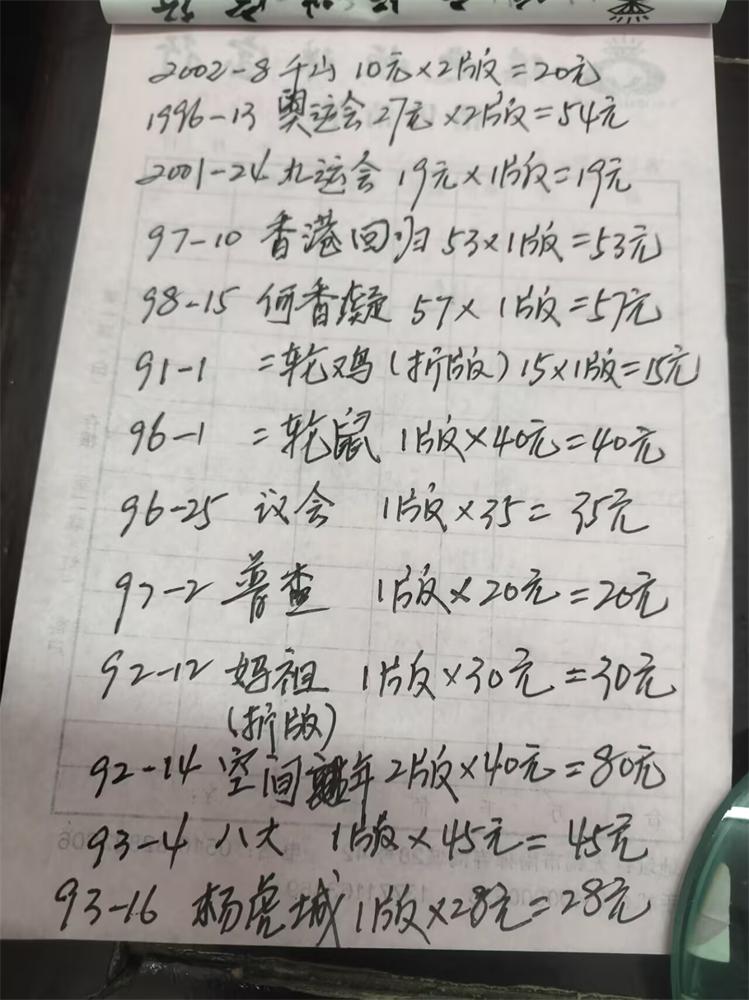 2002-8 千山 10元×2版=20元
1996-13 奥运会 27元×2版=54元
2001-24 九运会 19元×1版=19元
97-10 香港回归 53×1版=53元
98-15 何香凝 57× 1版=57元
91-1 =轮鸡(折版)15×1版=15元
96-1 =轮鼠 1版×40元=40元
96-25 议会 1版×35= 35元
97-2 普查 1版×20元=20元
92-12 妈祖 1版×30元=30元
(折版)
92-14 空间年 2版×40元=80元
93-4 八大 1版×45元=45元
93-16 杨虎城 1版×28元=28元